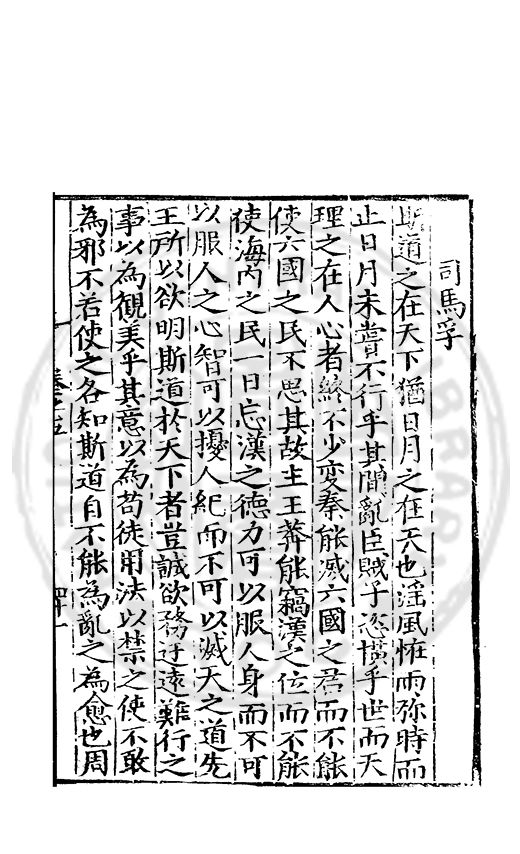 司馬孚
斯道之在天下猶日月之在天也淫風恠雨弥時而
止日月未嘗不行乎其間亂臣賊子恣横乎世而天
理之在人心者終不少変秦能滅六國之君而不能
使六國之民不思其故主王莽能竊漢之位而不能
使海内之民一日忘漢之德力可以服人身而不可
以服人之心智可以擾人紀而不可以滅天之道先
王所以欲明斯道於天下者豈誠欲務迂遠難行之
事以為觀美乎其意以為苟徒用法以禁之使不敢
為邪不若使之各知斯道自不能為亂之為愈也周
卷之五
四十一